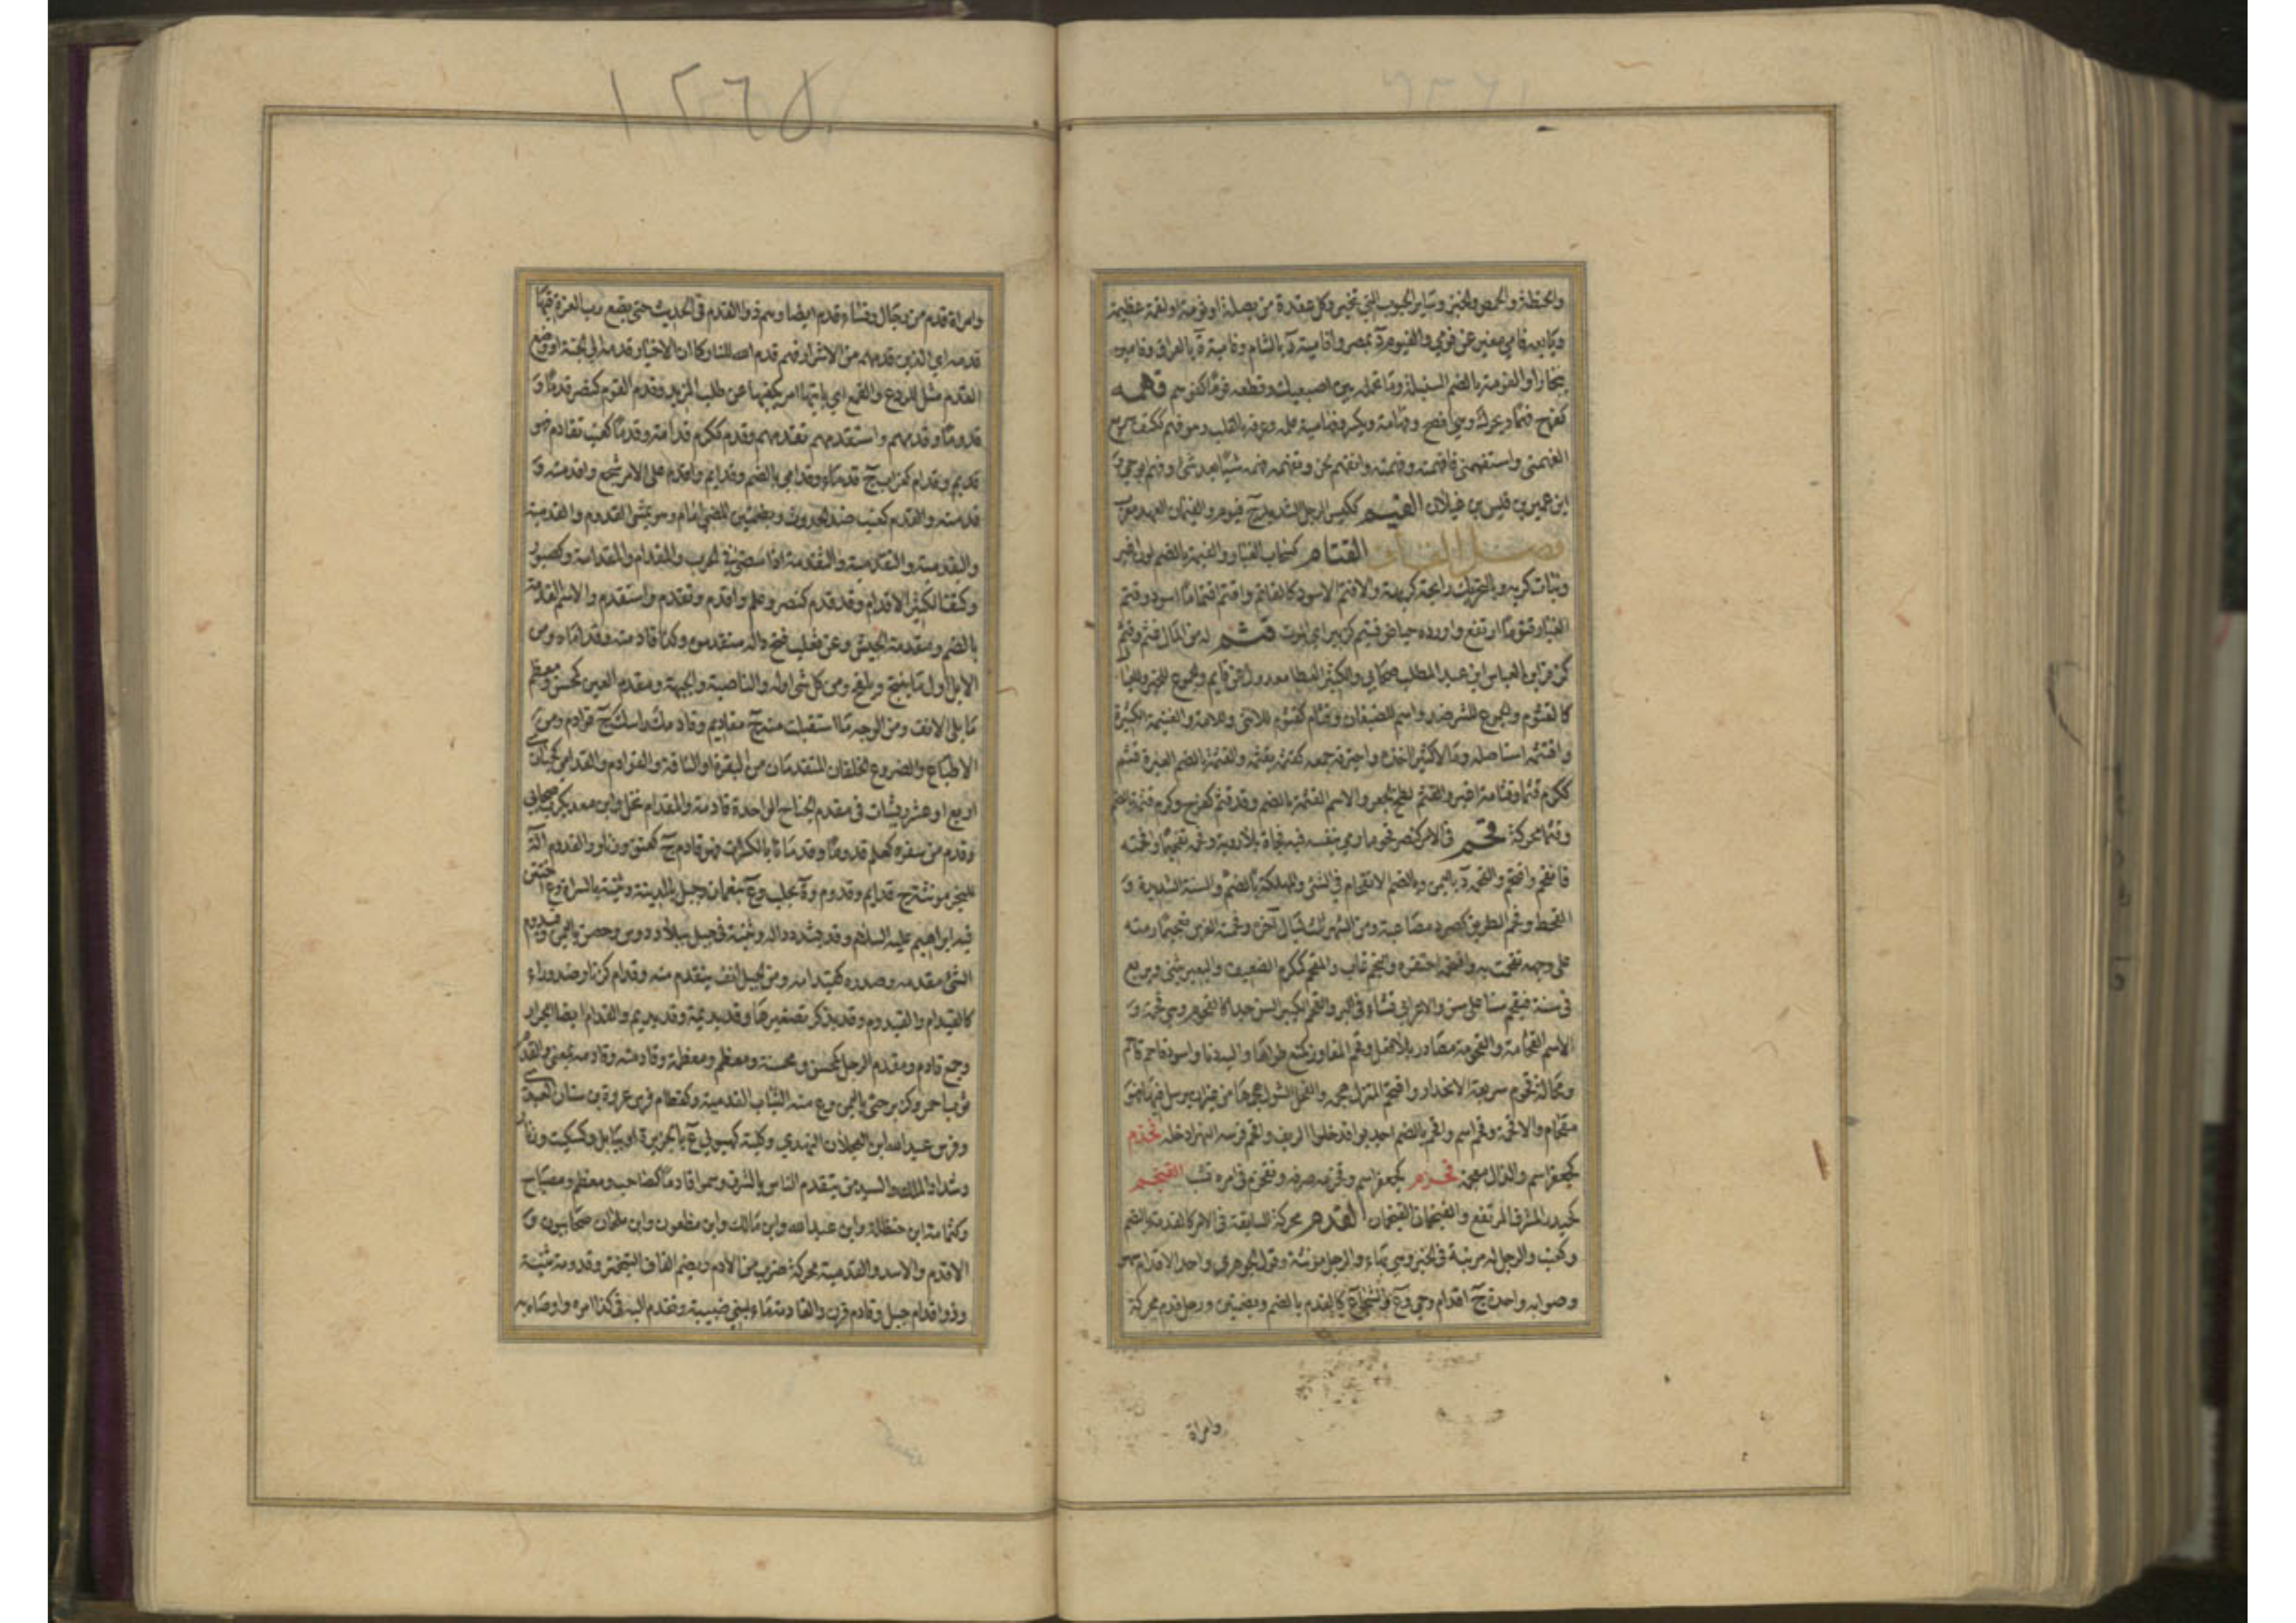 والحنطة والحمص والخبز وسائر الحبوب التي تخبز وكل عقدة من بصلة او ثومة او لقمة عظيمة
وبايعه فامي مغير عن فومي والفيوم د بمصر وافامية د بالشام وفامية ة بالعراق وفامين
ببخارا والفومة بالضم السنبلة وما تحمله بين اصبعيك وقطعه فوما كفوسم فهمه
كفرح فهما ويحرك وهي افصح وفهامة ويكسر وفهامية علمه وعرفه بالقلب وهو فهم ككتف سريع
الفهم واستفهمني فافهمته وفهمته وانفهم لحن وتفهمه فهمه شيئا بعد شئ وفهم ابو حي و
ابن عمرو بن قيس بن عيلان الفيم ككيس الرجل الشديد ج فيوم والفيمان العهد معرب
فصل القاف القتام كسحاب الغبار والقتمة بالضم لون اغبر
ونبات كريه وبالتحريك رائحة كريهة والاقتم الاسود كالقاتم واقتم اقتماما اسود وقتم
الغبار قتوما ارتفع واورده حياض قتيم كزبير اي الموت قثم له من المال قثم وقثم
كزفر ابن العباس ابن عبد المطلب صحابي والكثير العطا معدول عن قاثم والجموع للخير وللعيال
كالقثوم والجموع للشر ضد واسم للضبعان وقثام كقثوم للانثى وللامة والغنيمة الكثيرة
واقتثمه استاصله ومالا كثيرا اخذه واجترفه جمعه كقثمه يقثمه والقثمة بالضم الغبرة قثم
ككرم قثما وقثامة اغبر والقثم لطخ الجعر والاسم القثمة بالضم وقد قثم كفرح وكرم قثمة بالضم
وقثما محركة قحم في الامر كنصر قحوما رمى بنفسه فيه فجاة بلا روية وقحمه تقحيما واقحمته
فانقحم واقتحم والقحمة د باليمن وبالضم الاقتحام في الشئ والمهلكة بالضم والسنة الشديدة و
القحط وقحم الطريق كصرد مصاعبه ومن الشهر ثلث ليال آخره وقحمته الفرس تقحيما رمته
على وجهه تقحمت به واقتحمه احتقره والنجم غاب والمقحم ككرم الضعيف والبعير يثني ويربع
في سنة فيقحم سنا على سن والاعرابي نشاء في البر والقحم الكبير السن جدا كالقحوم وهي قحمة و
الاسم القحامة والقحومة مصادر بلا فعل وقحم المفاوز كمنع طواها واليه دنا واسود قاحم قاتم
ومحالة قحوم سريعة الانحدار واقتحم المنزل هجمه والفحل الشول هجمها من غير ان يرسل فيها فهو
مقحام والاقحمة وقحم اسم واقحم بالضم احدبوا فدخلوا الريف واقحم فرسه النهر ادخله قحدم
كجعفر اسم والذال معجمة قحزم كجعفر اسم وقحزمه صرفه وتقحزم في امره تشب القيخم
كحيدر المشرف المرتفع والقيخمان القيقمان القدم محركة السابقة في الامر كالقدمة بالضم
وكعنب والرجل له مرتبة في الخير وهي بهاء والرجل مؤنثة وقول الجوهري واحد الاقدام سهو
وصوابه واحدة ج اقدام وحي وع والشجاع كالقدم بالضم وبضمتين ورجل قدم محركة
وامراة
١٢٦٥
وامراة قدم من رجال ونساء قدم ايضا وهم ذوو القدم في الحديث حتى يضع رب العزة فيها
قدمه اي الذين قدمهم من الاشرار فهم قدم الله للنار كما ان الاخيار قدمه الى الجنة او وضع
القدم مثل للردع والقمع اي ياتيها امر يكفيها عن طلب المزيد وقدم القوم كنصر قدما و
قدوما وقدمهم واستقدمهم تقدمهم وقدم ككرم قدامة وقدما كعنب تقادم فهو
قديم وقدام كغراب ج قدماء وقدامى بالضم وقدايم واقدم على الامر شجع واقدمته و
قدمته والقدم كعنب ضد الحدوث وبضمتين المضي امام وهو يمشي القدم والقدمية
واليقدمية والتقدمية والتقدمة اذا مضى في الحرب والمقدام والمقدامة وكصبور
وكتف الكثير الاقدام وقد قدم كنصر وعلم واقدم وتقدم واستقدم والاسم القدمة
بالضم ومقدمة الجيش وعن ثعلب فتح داله متقدموه وكذا قادمته وقداماه ومن
الابل اول ما ينتج ويلقح ومن كل شئ اوله والناصية والجبهة ومقدم العين كمحسن ومعظم
ما يلي الانف ومن الوجه ما استقبلت منه ج مقاديم وقادمك راسك ج قوادم ومن
الاطباء والضروع الخلفان المتقدمان من البقرة او الناقة والقوادم والقدامى كحبارى
اربع او عشر ريشات في مقدم الجناح الواحدة قادمة والمقدام نخل وابن معديكرب صحابي
وقدم من سفره كعلم قدوما وقدمانا بالكسر آب فهو قادم ج كعنق وزنار والقدوم آلة
للنجر مؤنثة ج قدايم وقدوم و ة بحلب وع بنعمان وجبل بالمدينة وثنية بالسراة وع اختتن
فيه ابراهيم عليه السلام وقد تشدد داله وثنية في جبل ببلاد دوس وحصن باليمن وقيدوم
الشئ مقدمه وصدره كقيدامه ومن الجبل انف يتقدم منه وقدام كزنار ضد وراء
كالقيدام والقيدوم وقد يذكر تصغيرها قديديمة وقديديم والقدام ايضا الجزار
وجمع قادم ومقدم الرحل كمحسن ومحسنة ومعظم ومعظمة وقادمته وقادمه بمعنى والقدم
ثوب احمر وكزفر حي باليمن وع منه الثياب القدمية وكقطام فرس عروة بن سنان العبدي
وفرس عبد الله ابن العجلان النهدي وكلبة كهيولى ع بالجزيرة او ببابل وكسكيت وزنار
وشداد الملك والسيد من يتقدم الناس بالشرف وسموا قادما كصاحب ومعظم ومصباح
وكثمامة ابن حنظلة وابن عبد الله وابن مالك وابن مظعون وابن ملحان صحابيون و
الاقدم والاسد والقدمية محركة ضرب من الادم وبضم القاف التبختر وقدومة ثنية
وذو اقدام جبل وقادم قرن والقادمة ماء لبني ضبينة وتقدم اليه في كذا امره واوصاه به